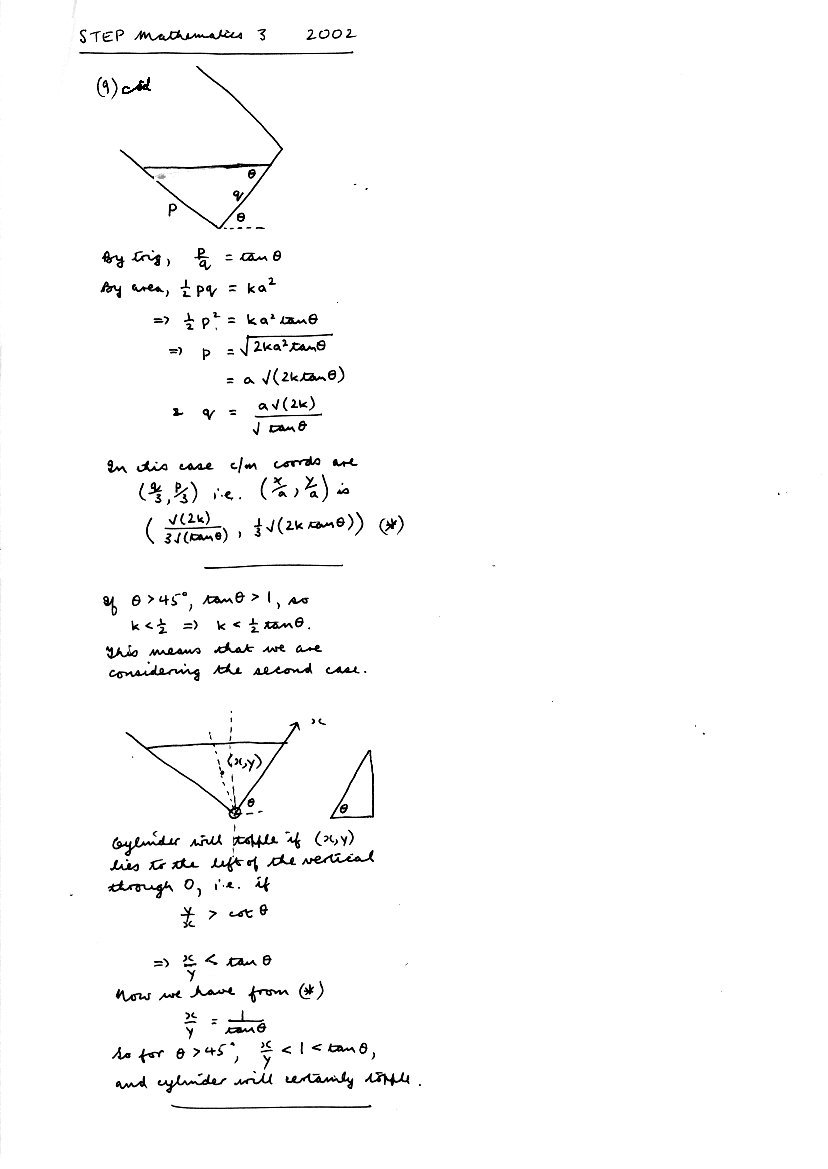 STEP Mathematics 3 2002
(9) ctd
θ
q
p
θ
By trig, p/q = tan θ
By area, ½ pq = ka²
=> ½ p² = ka² tan θ
=> p = √2ka² tan θ
= a √(2k tan θ)
& q = a√(2k) / √tan θ
In this case c/m coords are
(q/3, p/3) i.e. (x/a, y/a) is
(√(2k) / 3√(tan θ), ⅓√(2k tan θ)) (*)
If θ > 45°, tan θ > 1, so
k < ½ => k < ½ tan θ.
This means that we are
considering the second case.
x
(x,y)
θ
θ
Cylinder will topple if (x,y)
lies to the left of the vertical
through O, i.e. if
y/x > cot θ
=> x/y < tan θ
Now we have from (*)
x/y = 1/tan θ
So for θ > 45°, x/y < 1 < tan θ,
and cylinder will certainly topple.